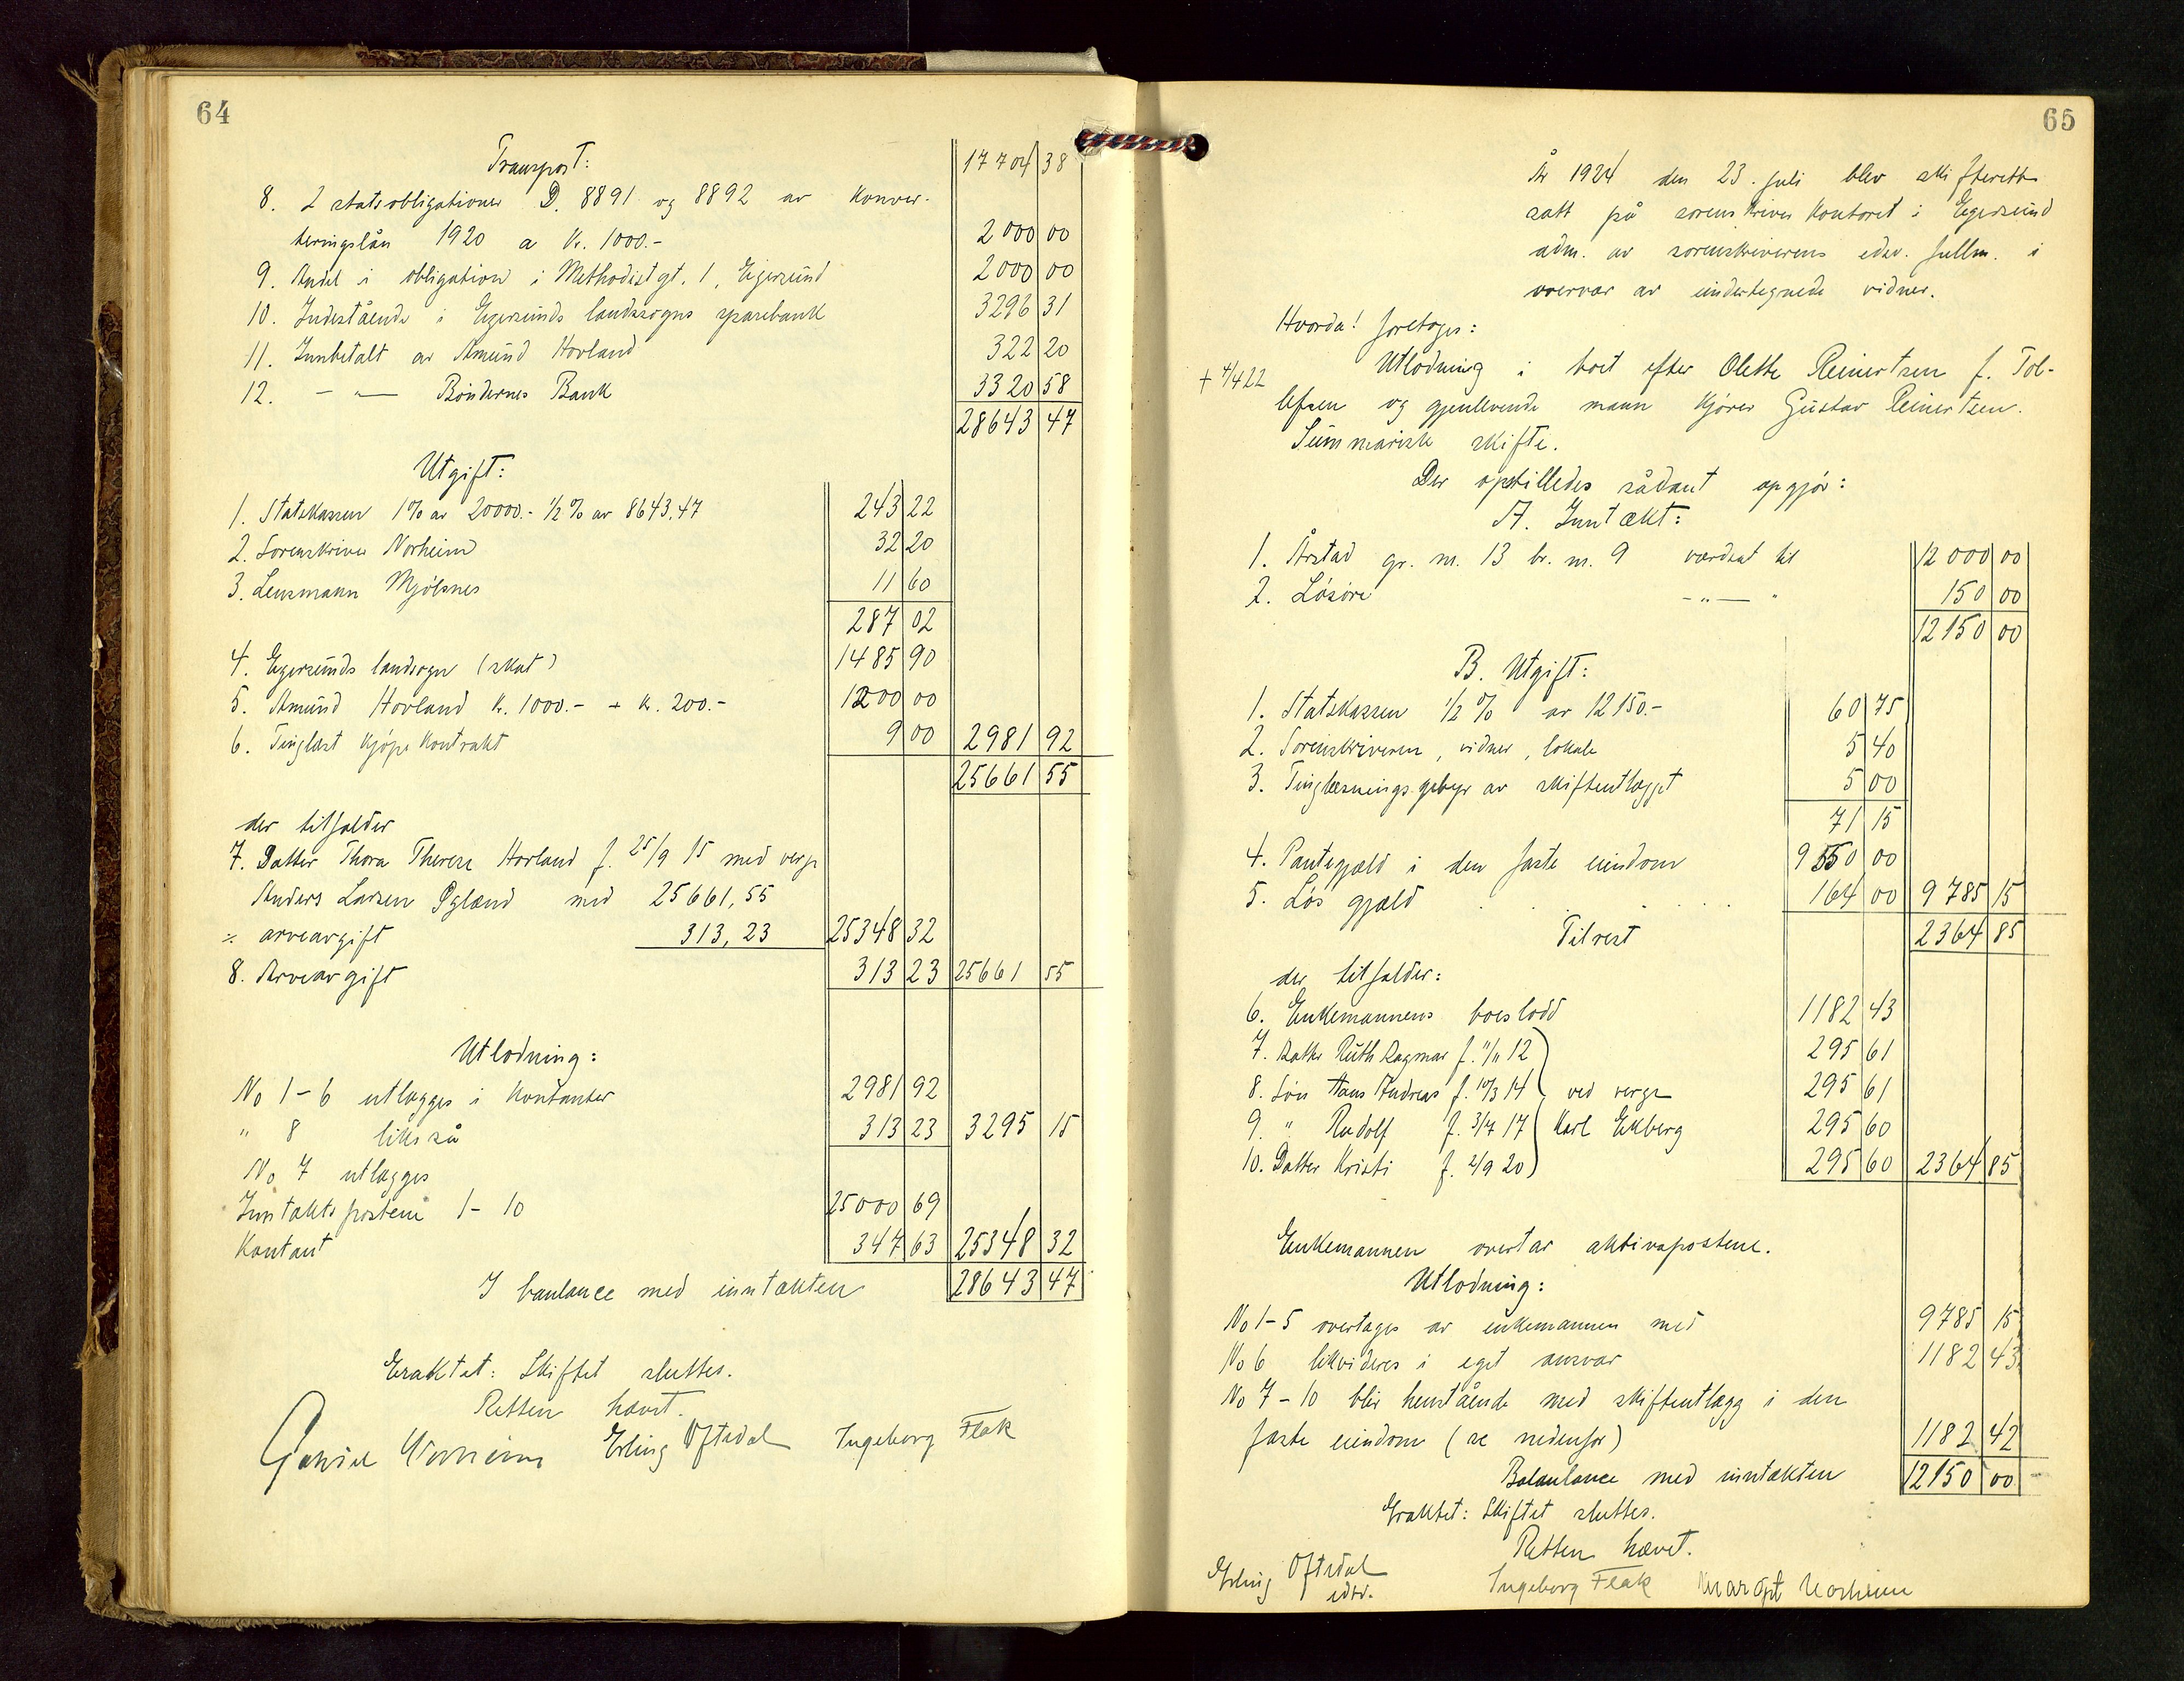 64
Transport: 17704 38
8. 2 statsobligationer D. 8891 og 8892 av Konver-
teringslån 1920 a Kr. 1000.- 2000 00
9. Andel i obligation i Methodistgt. 1, Egersund 2000 00
10. Indestående i Egersunds landssogns sparebank 3296 31
11. Innbetalt av Amund Hovland 322 20
12. - " - Bøndernes Bank 3320 58
28643 47
Utgift:
1. Statskassen 1% av 20000.- 1/2% av 8643.47 243 22
2. Sorenskriver Norheim 32 20
3. Lensmann Mjølsnes 11 60
287 02
4. Egersunds landsogn (skat) 1485 90
5. Amund Hovland Kr. 1000.- + Kr. 200.- 1200 00
6. Tinglæst Kjøpekontrakt 9 00 2981 92
25661 55
der tilfalder
7. Datter Thora Therese Hovland f. 25/9 15 med verge
Anders Larsen Øgland med 25661,55
÷ arveavgift 313,23 25348 32
8. Arveavgift 313 23 25661 55
Utlodning:
No 1-6 utlægges i Kontanter 2981 92
" 8 likeså 313 23 3295 15
No 7 utlægges
Inntektspostene 1-10 25000 69
Kontant 347 63 25348 32
I banlance med inntækten 28643 47
Eraktet: Skiftet sluttes.
Retten hævet.
Norheim Erling Oftedal Ingeborg Fleak
65
År 1924 den 23. juli blev skifterett
satt på sorenskriver Kontoret i Egersund
adm. av sorenskriverens edsv. fullm. i
overvær av undertegnede vidner.
Hvorda! foretoges:
+ 4/4 22 Utlodning i boet efter Olette Reinertsen f. Tol-
lefsen og gjenlevende mann Kjører Gustav Reinertsen.
Summarisk skifte.
Der opstilledes sådant opgjør:
A. Inntækt:
1. Årstad gr. nr. 13 br. nr. 9 værdsat til 12000 00
2. Løsøre - " - " 150 00
12150 00
B. Utgift:
1. Statskassen 1/2% av 12150.- 60 75
2. Sorenskriveren, vidner, lokale 5 40
3. Tinglæsnings.gebyr av skifteutlægget 5 00
71 15
4. Pantegjæld i den faste eiendom 9550 00
5. Løs gjæld . . . . . 164 00 9785 15
Tilrest 2364 85
der tilfalder:
6. Enkemannens boeslodd 1182 43
7. Datter Ruth Dagmar f. 11/11 12 295 61
8. Søn Hans Andreas f. 10/3 14 ved verge 295 61
9. " Rudolf f. 3/7 17 Karl Ekberg 295 60
10. Datter Kristi f. 2/9 20 295 60 2364 85
Enkemannen overtar aktivapostene.
Utlodning:
No 1-5 overtages av enkemannen med 9785 15
No 6 likvideres i eget ansvar 1182 43
No 7-10 blir henstående med skifteutlægg i den
faste eiendom (se nedenfor) 1182 42
Balanlance med inntækten 12150 00
Eraktet: Skiftet sluttes.
Retten hævet.
Erling Oftedal Ingeborg Fleak Margit Norheim
edsv.